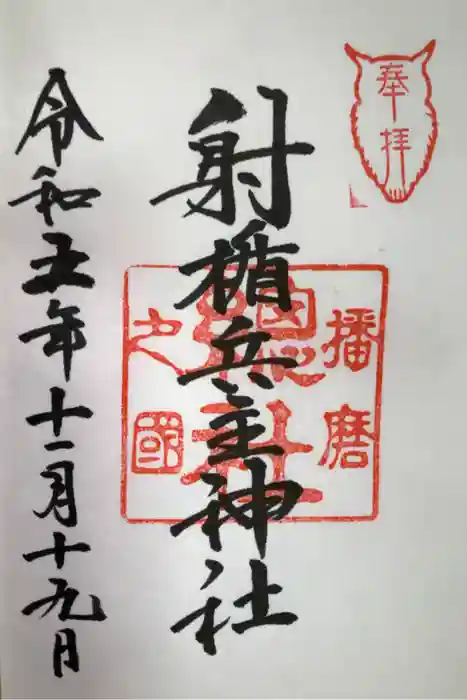 奉拝
射楯兵主神社
播磨
総社
之國
令和五年十一月十九日